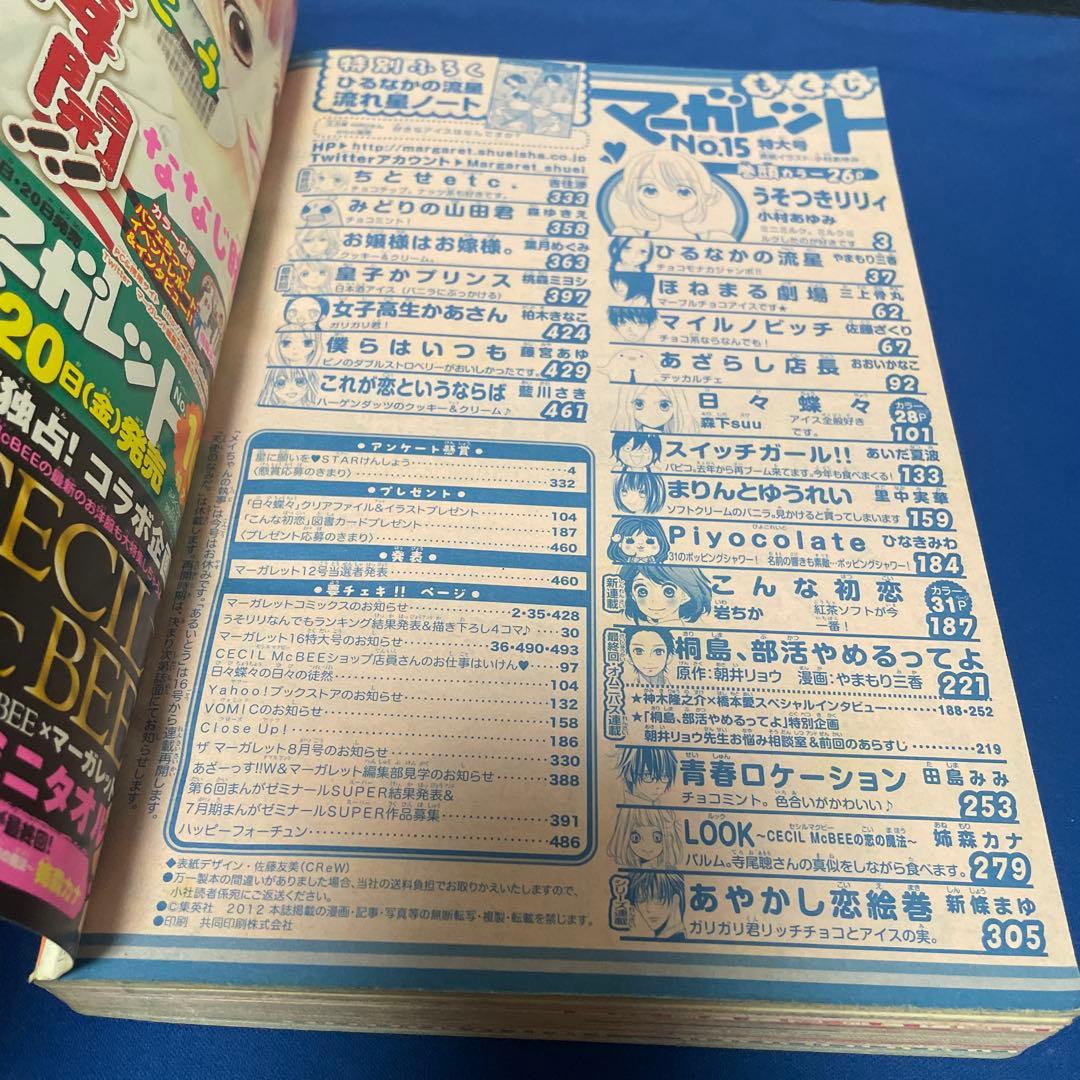 もくじ
マーガレット
No.15 特大号
表紙イラスト・小村あゆみ
巻頭カラー26P
うそつきリリィ
小村あゆみ
ミニミルク。ミルクミルクしたのが好きです
3
ひるなかの流星 やまもり三香
チョコモナカジャンボ!!
37
ほねまる劇場 三上骨丸
マーブルチョコアイスです★
62
マイルノビッチ 佐藤ざくり
チョコ系ならなんでも!
67
あざらし店長 おおいかなこ
デッカルチェ
92
日々蝶々
カラー28P
森下suu
アイス全般好きです。
101
スイッチガール!! あいだ夏波
パピコ。去年から再ブーム来てます。今年も食べまくる!
133
まりんとゆうれい 里中実華
ソフトクリームのバニラ。見かけると買ってしまいます
159
Piyocolate ひなきみわ
31のポッピングシャワー! 名前の響きも素敵…ポッピングシャワー!
184
新連載
こんな初恋
カラー31P
岩ちか
紅茶ソフトが今一番!
187
最終回・オムニバス連載
桐島、部活やめるってよ
原作:朝井リョウ 漫画:やまもり三香
221
★神木隆之介×橋本愛スペシャルインタビュー 188・252
★「桐島、部活やめるってよ」特別企画
朝井リョウ先生お悩み相談室&前回のあらすじ 219
青春ロケーション 田島みみ
チョコミント。色合いがかわいい♪
253
LOOK ~CECIL McBEEの恋の魔法~ 姉森カナ
パルム。寺尾聰さんの真似をしながら食べます。
279
シリーズ連載
あやかし恋絵巻 新條まゆ
ガリガリ君リッチチョコとアイスの実。
305
特別ふろく
ひるなかの流星
流れ星ノート
好きなアイスはなんですか?
HP▶http://margaret.shueisha.co.jp
Twitterアカウント▶Margaret_shuei
ちとせetc. 吉住渉
チョコチップ、ナッツ系も好きです。
333
みどりの山田君 森ゆきえ
チョコミント!
358
お嬢様はお嫁様。 葉月めぐみ
クッキー&クリーム。
363
最終回
皇子かプリンス 桃森ミヨシ
日本酒アイス(バニラにぶっかける)
397
女子高生かあさん 柏木きなこ
ガリガリ君!
424
僕らはいつも 藤宮あゆ
ピノのダブルストロベリーがおいしかったです。
429
これが恋というならば 藍川さき
ハーゲンダッツのクッキー&クリーム♪
461
アンケート懸賞
星に願いを♥STARけんしょう 4
〈懸賞応募のきまり〉 332
プレゼント
「日々蝶々」クリアファイル&イラストプレゼント 104
「こんな初恋」図書カードプレゼント 187
〈プレゼント応募のきまり〉 460
発表
マーガレット12号当選者発表 460
要チェキ!! ページ
マーガレットコミックスのお知らせ 2・35・428
うそリリなんでもランキング結果発表&描き下ろし4コマ♪ 30
マーガレット16特大号のお知らせ 36・490・493
CECIL McBEEショップ店員さんのお仕事はいけん♥ 97
日々蝶々の日々の徒然 104
Yahoo!ブックストアのお知らせ 132
VOMICのお知らせ 158
Close Up! 186
ザ マーガレット8月号のお知らせ 330
あざーっす!!W&マーガレット編集部見学のお知らせ 388
第6回まんがゼミナールSUPER結果発表&
7月期まんがゼミナールSUPER作品募集 391
ハッピーフォーチュン 486
◆表紙デザイン・佐藤友美(CReW)
●万一製本の間違いがありました場合、当社の送料負担でお取りかえいたしますので、
小社読者係宛にご返送ください。
●©集英社 2012 本誌掲載の漫画・記事・写真等の無断転写・複製・転載を禁じます。
●印刷 共同印刷株式会社
「メイちゃんの執事」は今号はお休みです。「あるいとう」は16号から連載再開します。
ななじ
カラー企画
パフェちっく!
イベントレポート
&インタビュー!!
日・20日発売
マーガレット
20日(金)発売
独占! コラボ企
McBEEの最新のお洋服も大特集しちゃ
CECIL
McBEE
BEE×マーガレット
ミニタオル
最終回!